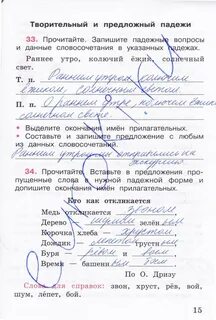 Творительный и предложный падежи
33. Прочитайте. Запишите падежные вопросы
и данные словосочетания в указанных падежах.
Раннее утро, колючий ёжик, солнечный
свет.
Т. п. Ранним утром, колючим
ёжиком, солнечным светом.
П. п. О раннем утре, колючем ёжике
солнечном свете.
• Выделите окончания имён прилагательных.
• Составьте и запишите предложение с любым
из данных словосочетаний.
Ранним утром отправились на
экскурсию
34. Прочитайте. Вставьте в предложения про-
пущенные слова в нужной падежной форме и
допишите окончания имён прилагательных.
Кто как откликается
Медь откликается звоном,
Дерево — шумом зелёным
Корочка хлеба — хрустом
Дождик — грустным
Буря — рёвом и воем
Время — башенным
По О. Дризу
Слова для справок: звон, хруст, рёв, вой,
шум, лёпет, бой.
15